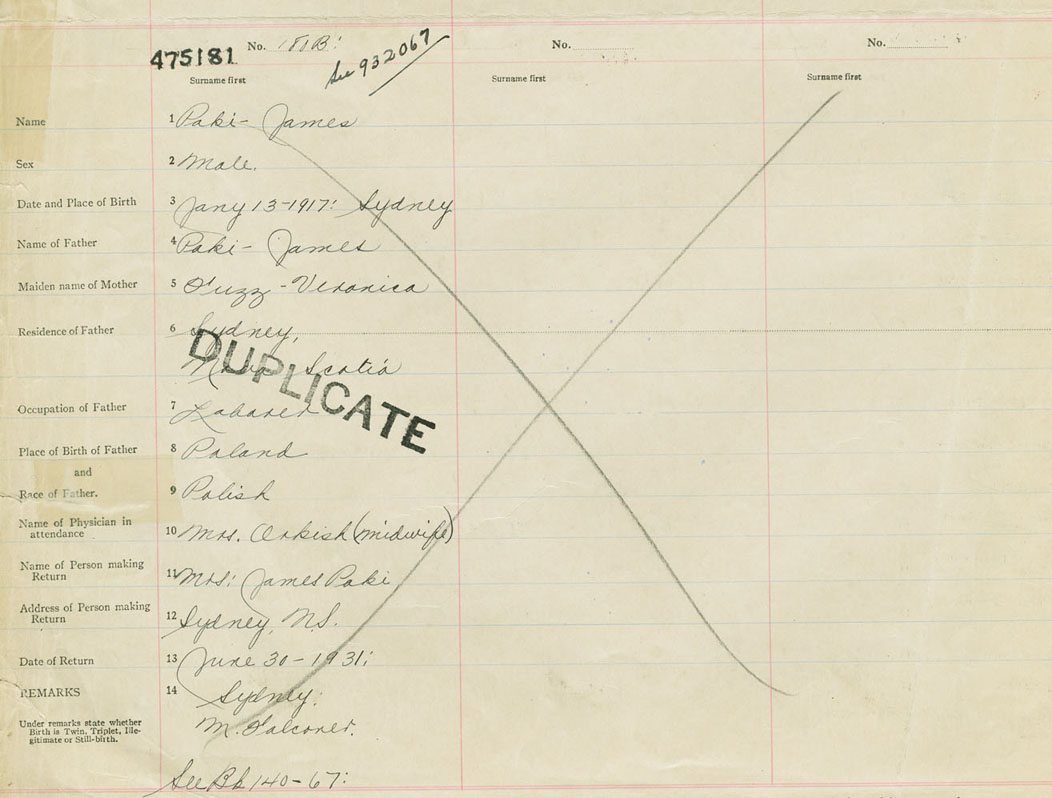 475181 No. 180B: See 932067 No. No.
Surname first Surname first Surname first
Name 1 Paki- James
Sex 2 Male.
Date and Place of Birth 3 Jany 13-1917: Sydney
Name of Father 4 Paki- James
Maiden name of Mother 5 Fuzz - Veronica
Residence of Father 6 Sydney,
Nova Scotia
DUPLICATE
Occupation of Father 7 Laborer
Place of Birth of Father 8 Poland
and
Race of Father. 9 Polish
Name of Physician in
attendance 10 Mrs. Orkish (midwife)
Name of Person making
Return 11 Mrs: James Paki
Address of Person making
Return 12 Sydney, N.S.
Date of Return 13 June 30-1931:
REMARKS 14 Sydney:
Under remarks state whether
Birth is Twin, Triplet, Ille-
gitimate or Still-birth.
M. Falconer.
See Bk 140-67: